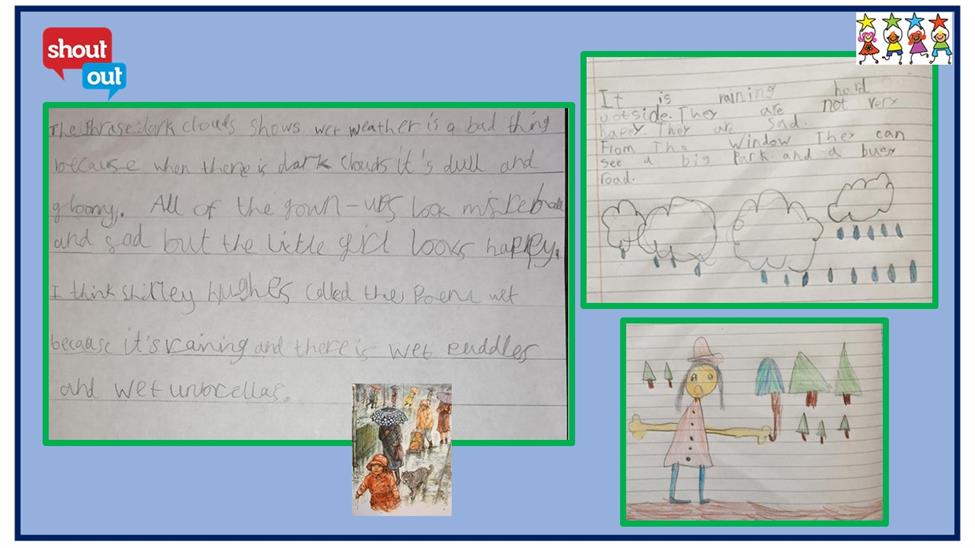 shout
out
The Phrase dark clouds shows wet weather is a bad thing
because when there is dark clouds it's dull and
gloomy. All of the gown-ups look miskeb
and sad but the little girl looks happy.
I think shirley hughes called the Poem wet
because it's raining and there is wet puddles
and wet unbrellas.
It is raining hard
outside. They are not very
happy. They are sad.
From The Window They can
see a big Park and a buey
road.